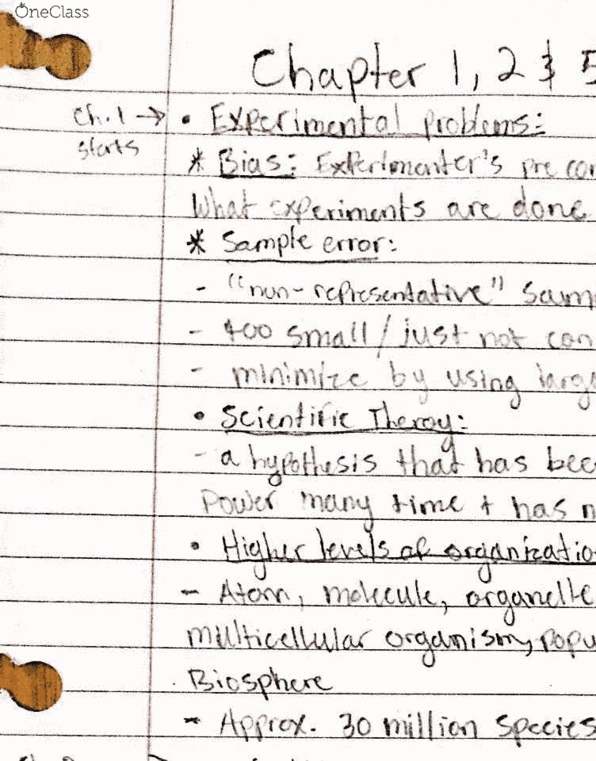 OneClass
Chapter 1, 2 & 5
Ch. 1 → • Experimental problems:
starts
* Bias: Experimenter's pre con
What experiments are done
* Sample error:
- "non-representative" Sam
- too small / just not con
- minimize by using large
• Scientific Theroy:
- a hypothesis that has bee
Power many time + has n
• Higher levels of organizatio
- Atom, molecule, organelle
multicellular organism, popu
Biosphere
- Approx. 30 million species